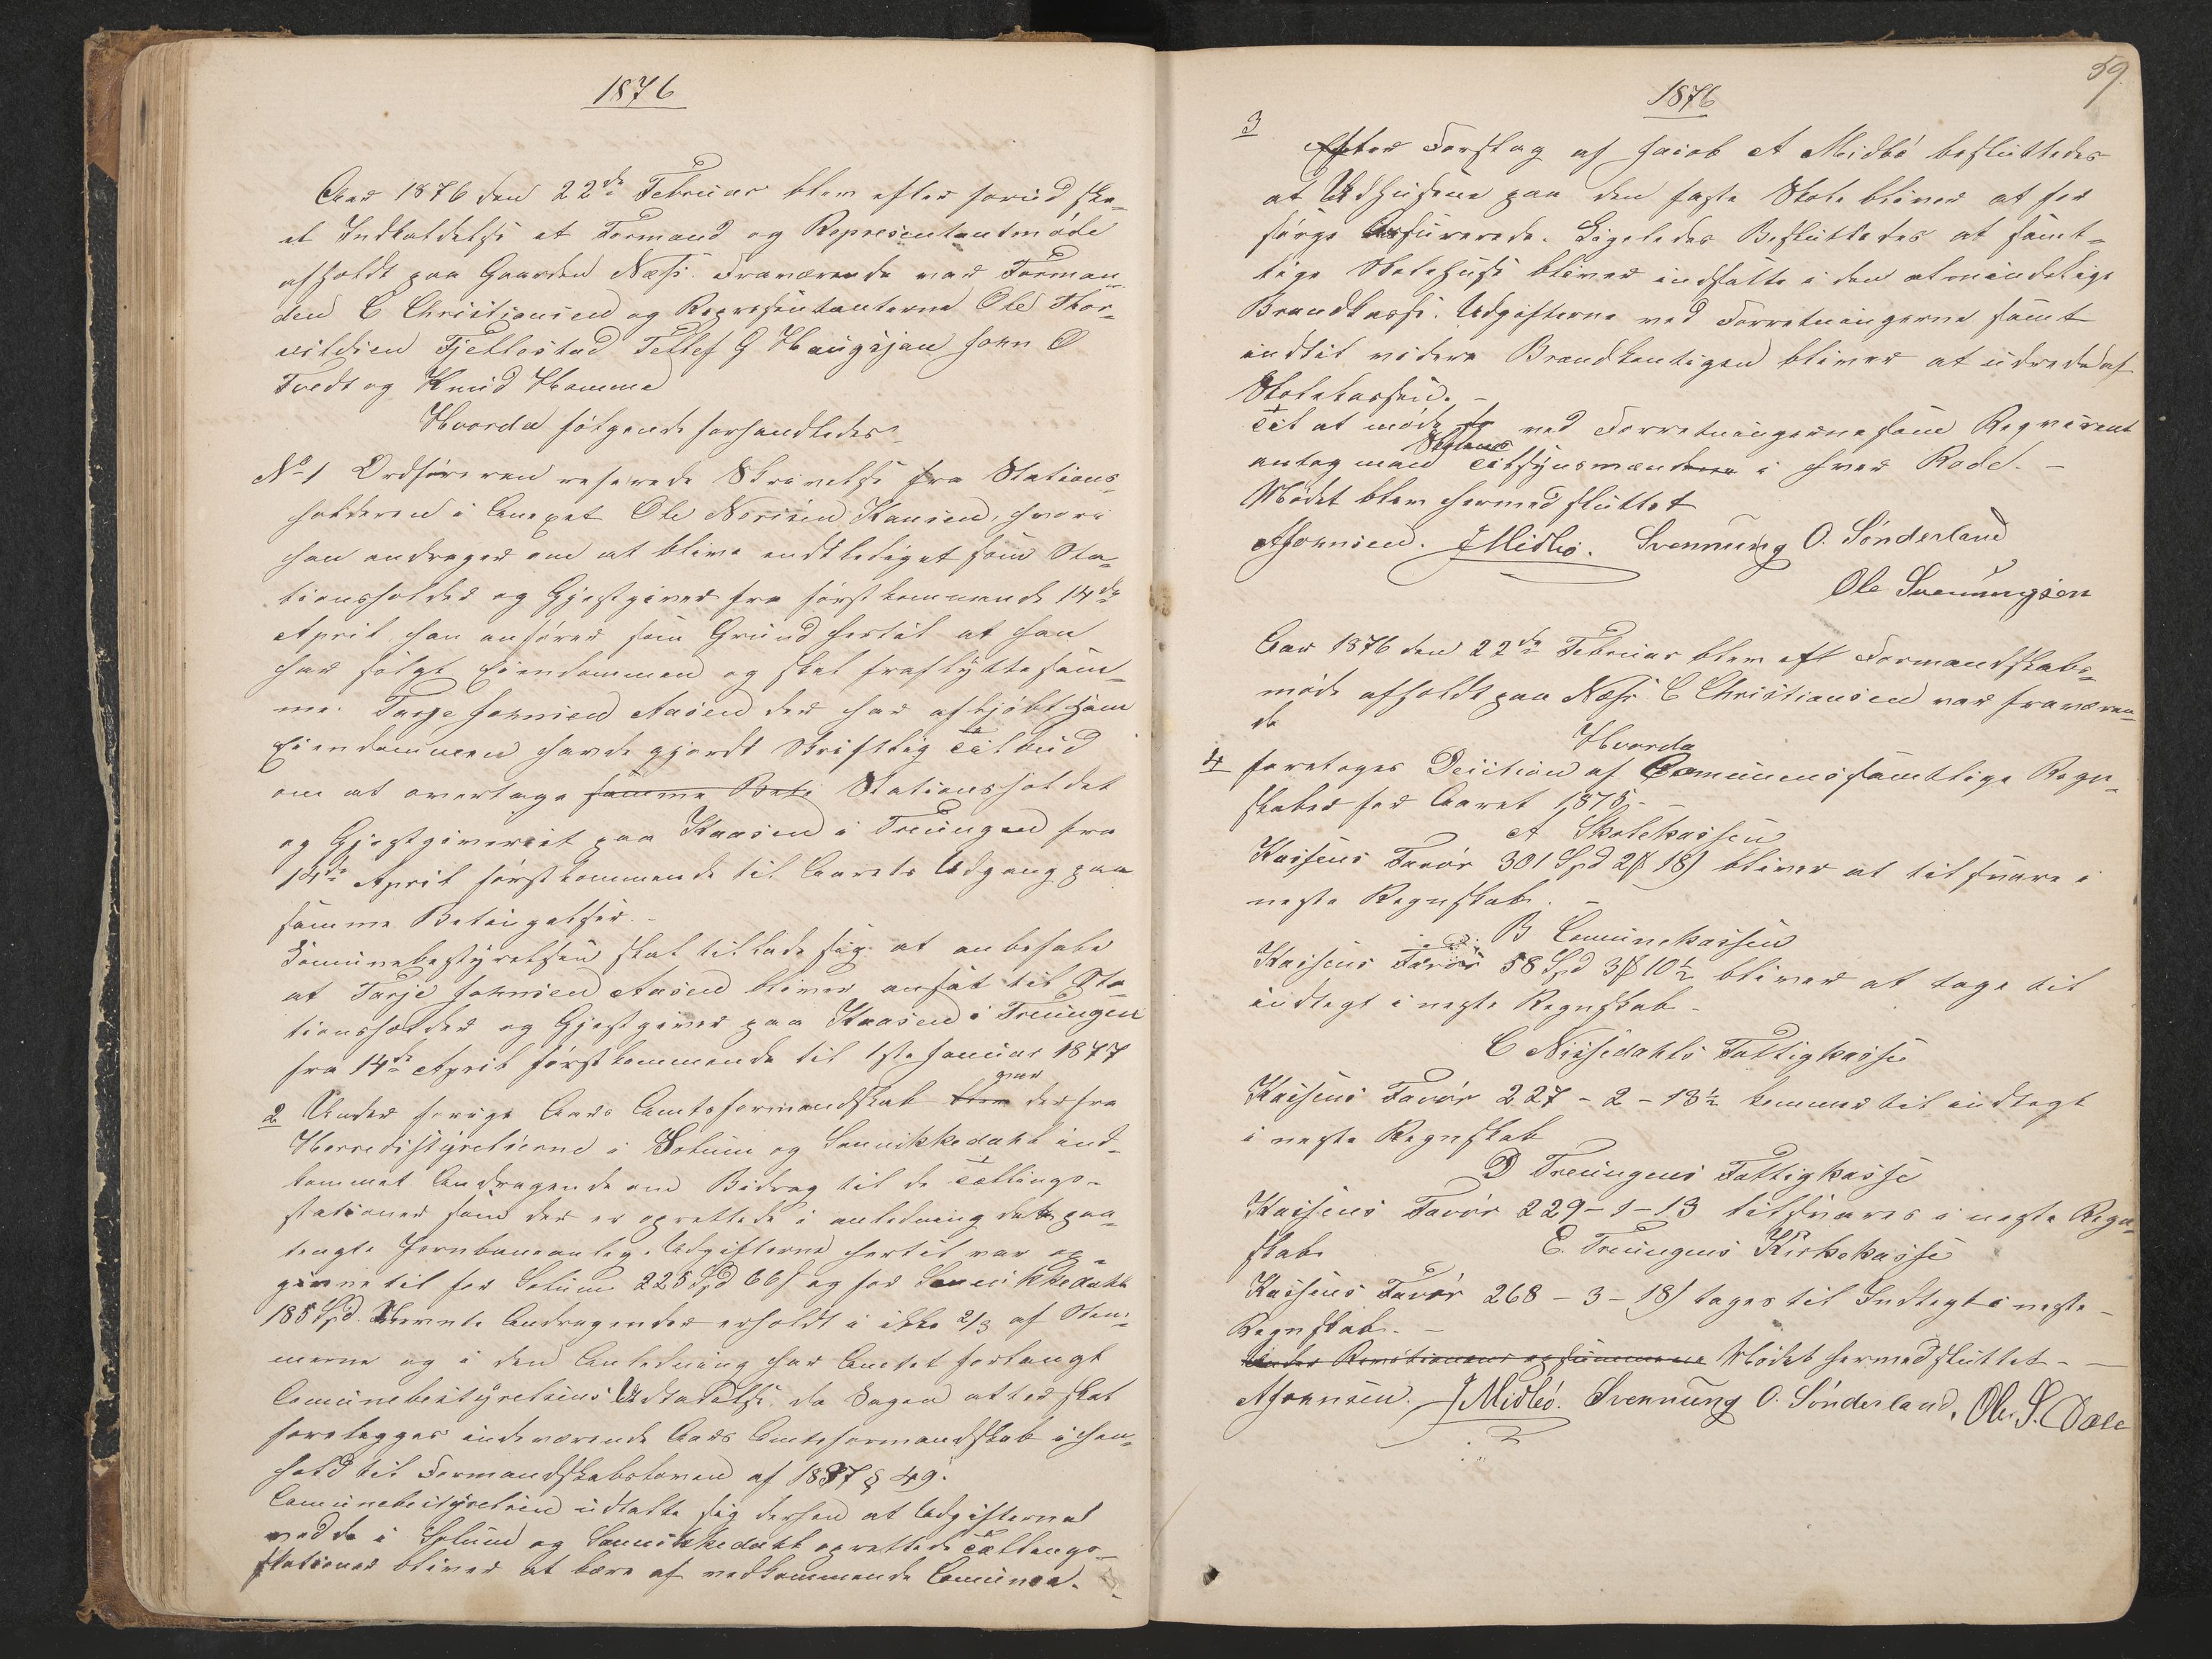 1876
Aar 1876 den 22de Februar blev efter forud ske-
et Indkaldelse et Formand og Representantmøde
afholdt paa Gaarden Næss. Fraværende var Forman-
den C Christiansen og Repræsentanterne Ole Thor-
vildsen Fjellestad Tellef G Haugsjaa John O
Tvedt og Knud Hamme
Hvorda følgende forhandledes
No 1 Ordføreren refererede Skrivelse fra Stations-
holderen i Ole Nerisen Kaasen, hvori
han andrager om at blive endtlediget som Sta-
tionsholder og Gjestgiver fra førstkommende 14de
April han anfører som Grund hertil at han
har solgt Eiendommen og skal fraflytte sam-
me. Tarje Johnsen Aasen der har afkjøbt ham
Eiendommen havde gjordt Skriftlig Tilbud
om at overtage samme Stationsholdet
og Gjestgiveriet paa Kaasen i Treungen fra
14de April førstkommende til Aarets Udgang paa
samme Betingelser.-
Komunebestyrelsen skal tillade sig at anbefale
at Tarje Johnsen Aasen bliver ansat til Sta-
tionsholder og Gjestgiver paa Kaasen i Treungen
fra 14de April førstkommende til 1ste Januar 1877
2 Under forrige Aars Amtsformandskab blev var der fra
Herredistyrelserne i Solum og Sannikkedahl ind-
kommet Andragende om Bidrag til de Tællings-
stationer som der er oprettede i anledning det paa-
tengte Jernbaneanlæg. Udgifterne hertil var op-
givne til for Solum 225 Spd 66 s og for Sannikkedahl
185 Spd. Nævnte Andragender erholdt i ikke 2/3 af Stem-
merne og i den Anledning har Amtet forlangt
Comunebestyrelsens Udtalelse, da Sagen atter skal
forelegges indeværende Aars Amtsformandskab i hen-
hold til Formandskabsloven af 1837 § 49.
Comunebestyrelsen udtalte sig derhen at Udgifterne
ved de i Solum og Sannikkedahl oprettede Tællings-
stationer bliver at bære af vedkommende Comuner.
59.
1876
3
Efter Forslag af Jacob A Midbø besluttedes
at Udhusene paa den faste Skole bliver at for
sørge Assurerede. Ligeledes Besluttedes at samt-
lige Skolehuse bliver indsatte i den almindelige
Brandkasse. Udgifterne ved Forretningerne samt
indtil videre Brandkontigen bliver at udrede af
Skolekassen. -
Til at møde ved Forretningerne som Reqvirent
antog man Skolens Tilsynsmænd i hver Rode. -
Mødet blev hermed sluttet
AJohnsen. JMidbø. Svennung O. Sønderland
Ole Svennungsen
Aar 1876 den 22de Februar blev eft Formandskabs-
møde afholdt paa Næss C Christiansen var fraværen-
de
Hvorda
4 foretoges Desition af Comunens samtlige Regn-
skaber for Aaret 1875 -
A Skolekassen
Kassens Favør 301 Spd 2 18 s bliver at tilsvare i
neste Regnskab. -
B Comunekassen
Kassens Favør 58 Spd 3 10 1/2 bliver at tage til
indtegt i neste Regnskab -
C Nissedahls Fattigkasse
Kassens Favør 227 - 2 - 13 1/2 kommer til indtegt
i neste Regnskab
D Treungens Fattigkasse
Kassens Favør 229 - 1 - 13 tilsvares i neste Regn-
skab
E. Treungens Kirkekasse
Kassens Favør 268 - 3 - 18 s tages til Indtegt i neste
Regnskab. -
Mødet hermed sluttet - -
AJohnsen. JMidbø. Svennung O. Sønderland. Ole S. Dale